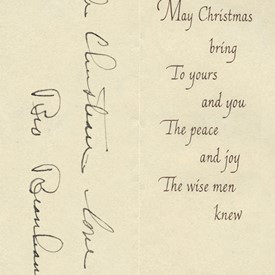 In Christian love
Bro Beanbau
May Christmas
bring
To yours
and you
The peace
and joy
The wise men
knew